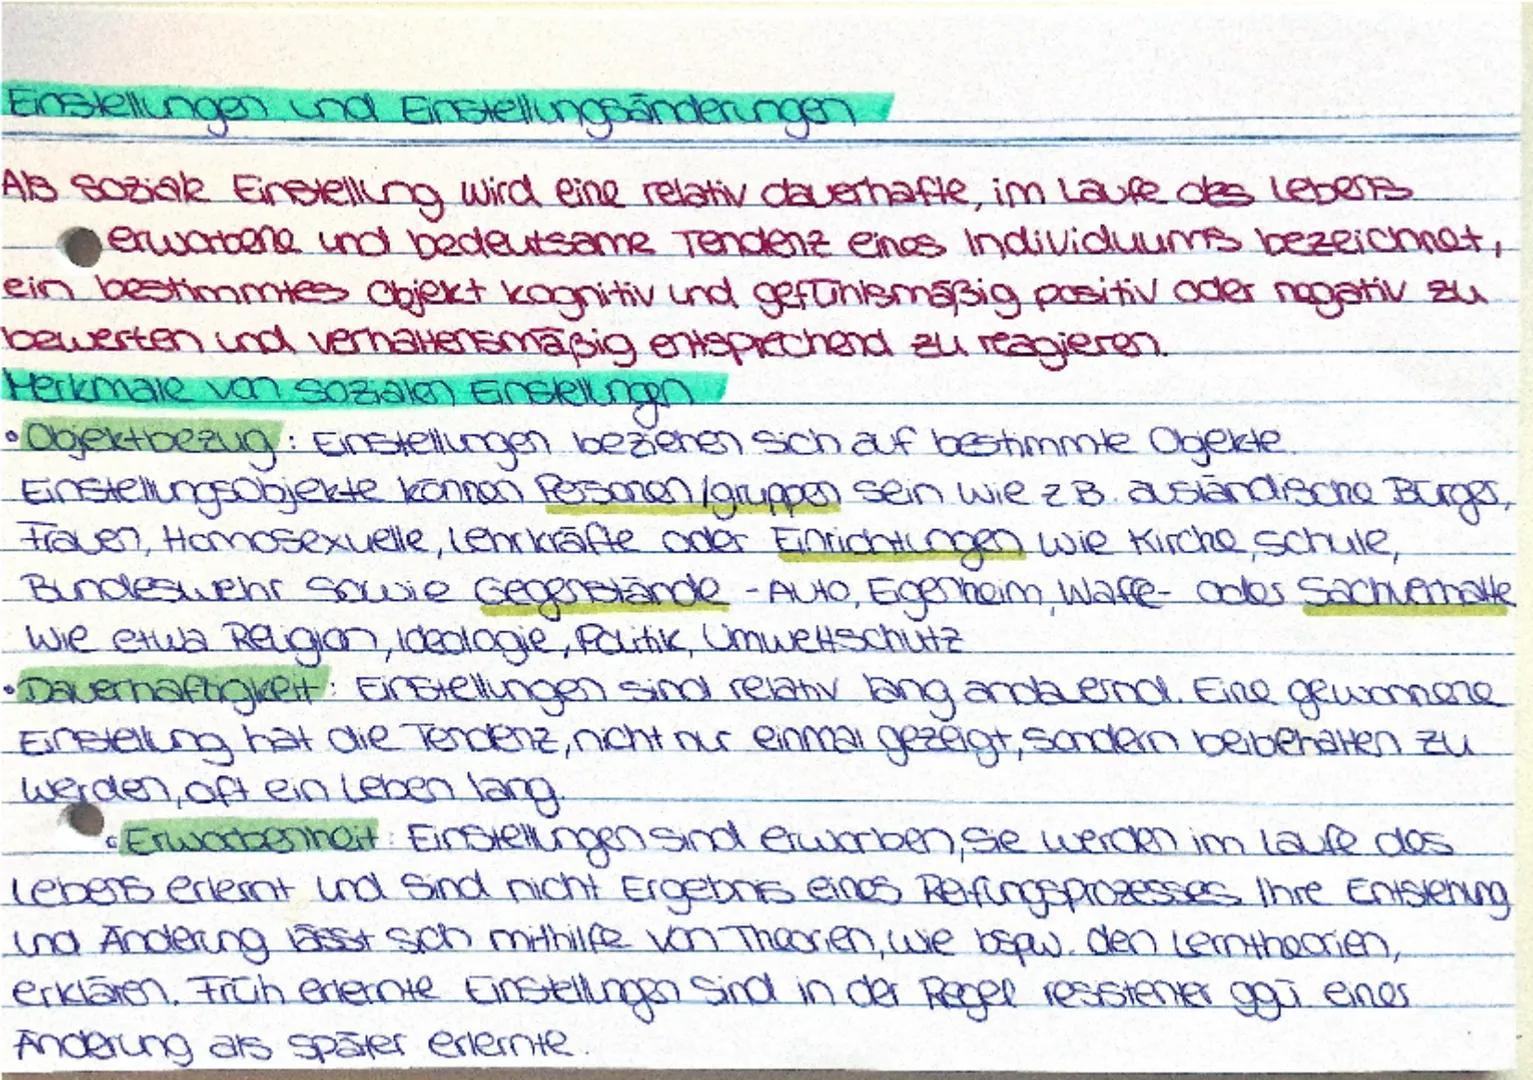 Einstellungen und Einstellungsänderungen
Als soziale Einstellung wird eine relativ dauerhafte, im Laufe des Lebens
erworbene und bedeutsame Tendenz eines Individuums bezeichnet,
ein bestimmtes Objekt kognitiv und gefühlsmäßig positiv oder negativ zu
bewerten und verhaltensmäßig entsprechend zu reagieren.
Merkmale von sozialen Einstellungen
• Objektbezug: Einstellungen beziehen sich auf bestimmte Ogjekte.
Einstellungsobjekte können Personen/gruppen sein wie z.B. ausländische Bürger,
Frauen, Homosexuelle, Lehrkräfte oder Einrichtungen wie Kirche, Schule,
Bundeswehr sowie Gegenstände -Auto, Eigenheim, Waffe- oder Sachverhalte
wie etwa Religion, Ideologie, Politik, Umweltschutz
• Dauerhaftigkeit: Einstellungen sind relativ lang andauernd. Eine gewonnene
Einstellung hat die Tendenz, nicht nur einmal gezeigt, sondern beibehalten zu
werden, oft ein Leben lang.
• Erworbenheit: Einstellungen sind erworben, sie werden im Laufe des
Lebens erlernt und sind nicht Ergebnis eines Reifungsprozesses. Ihre Entstehung
und Änderung lässt sich mithilfe von Theorien, wie bspw. den Lerntheorien,
erklären. Früh erlernte Einstellungen sind in der Regel resistenter ggü. einer
Änderung als später erlernte.